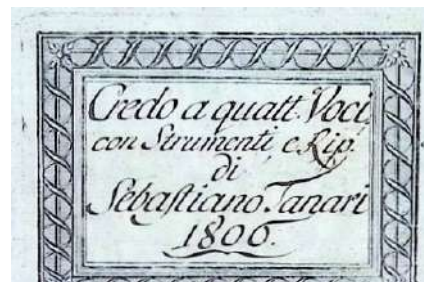 Credo a quatt. Voci,
con Strumenti, e Rip.
di
Sebastiano Tanari
1806.